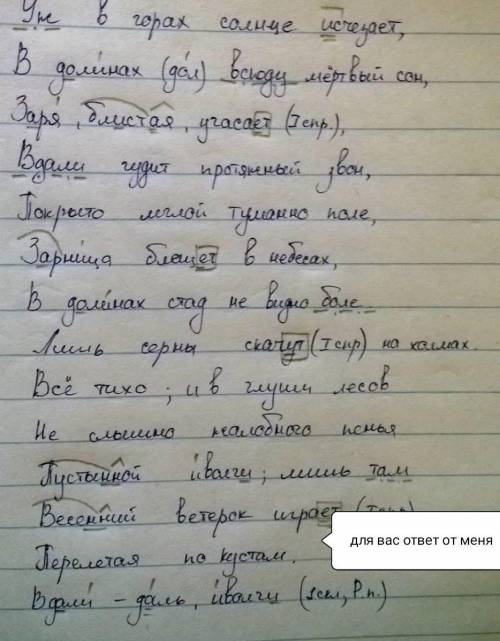 Уж в горах солнце исчезает,
В долинах (до́л) всюду мёртвый сон,
Заря́, блистая, угасает (I спр.),
Вдали гудит протяжный звон,
Покрыто мглой туманно поле,
Зарни́ца блещет в небесах,
В доли́нах стад не видно боле
Лишь серны скачут (I спр) на холмах.
Всё тихо; и в глуши лесов
Не слышно жалобного пенья
Пустынной и́волги; лишь там
Весенний ветерок играет (I спр)
для вас ответ от меня
Перелетая по кустам.
Вдали́ – да́ль, и́волги (1 скл, Р.п.)